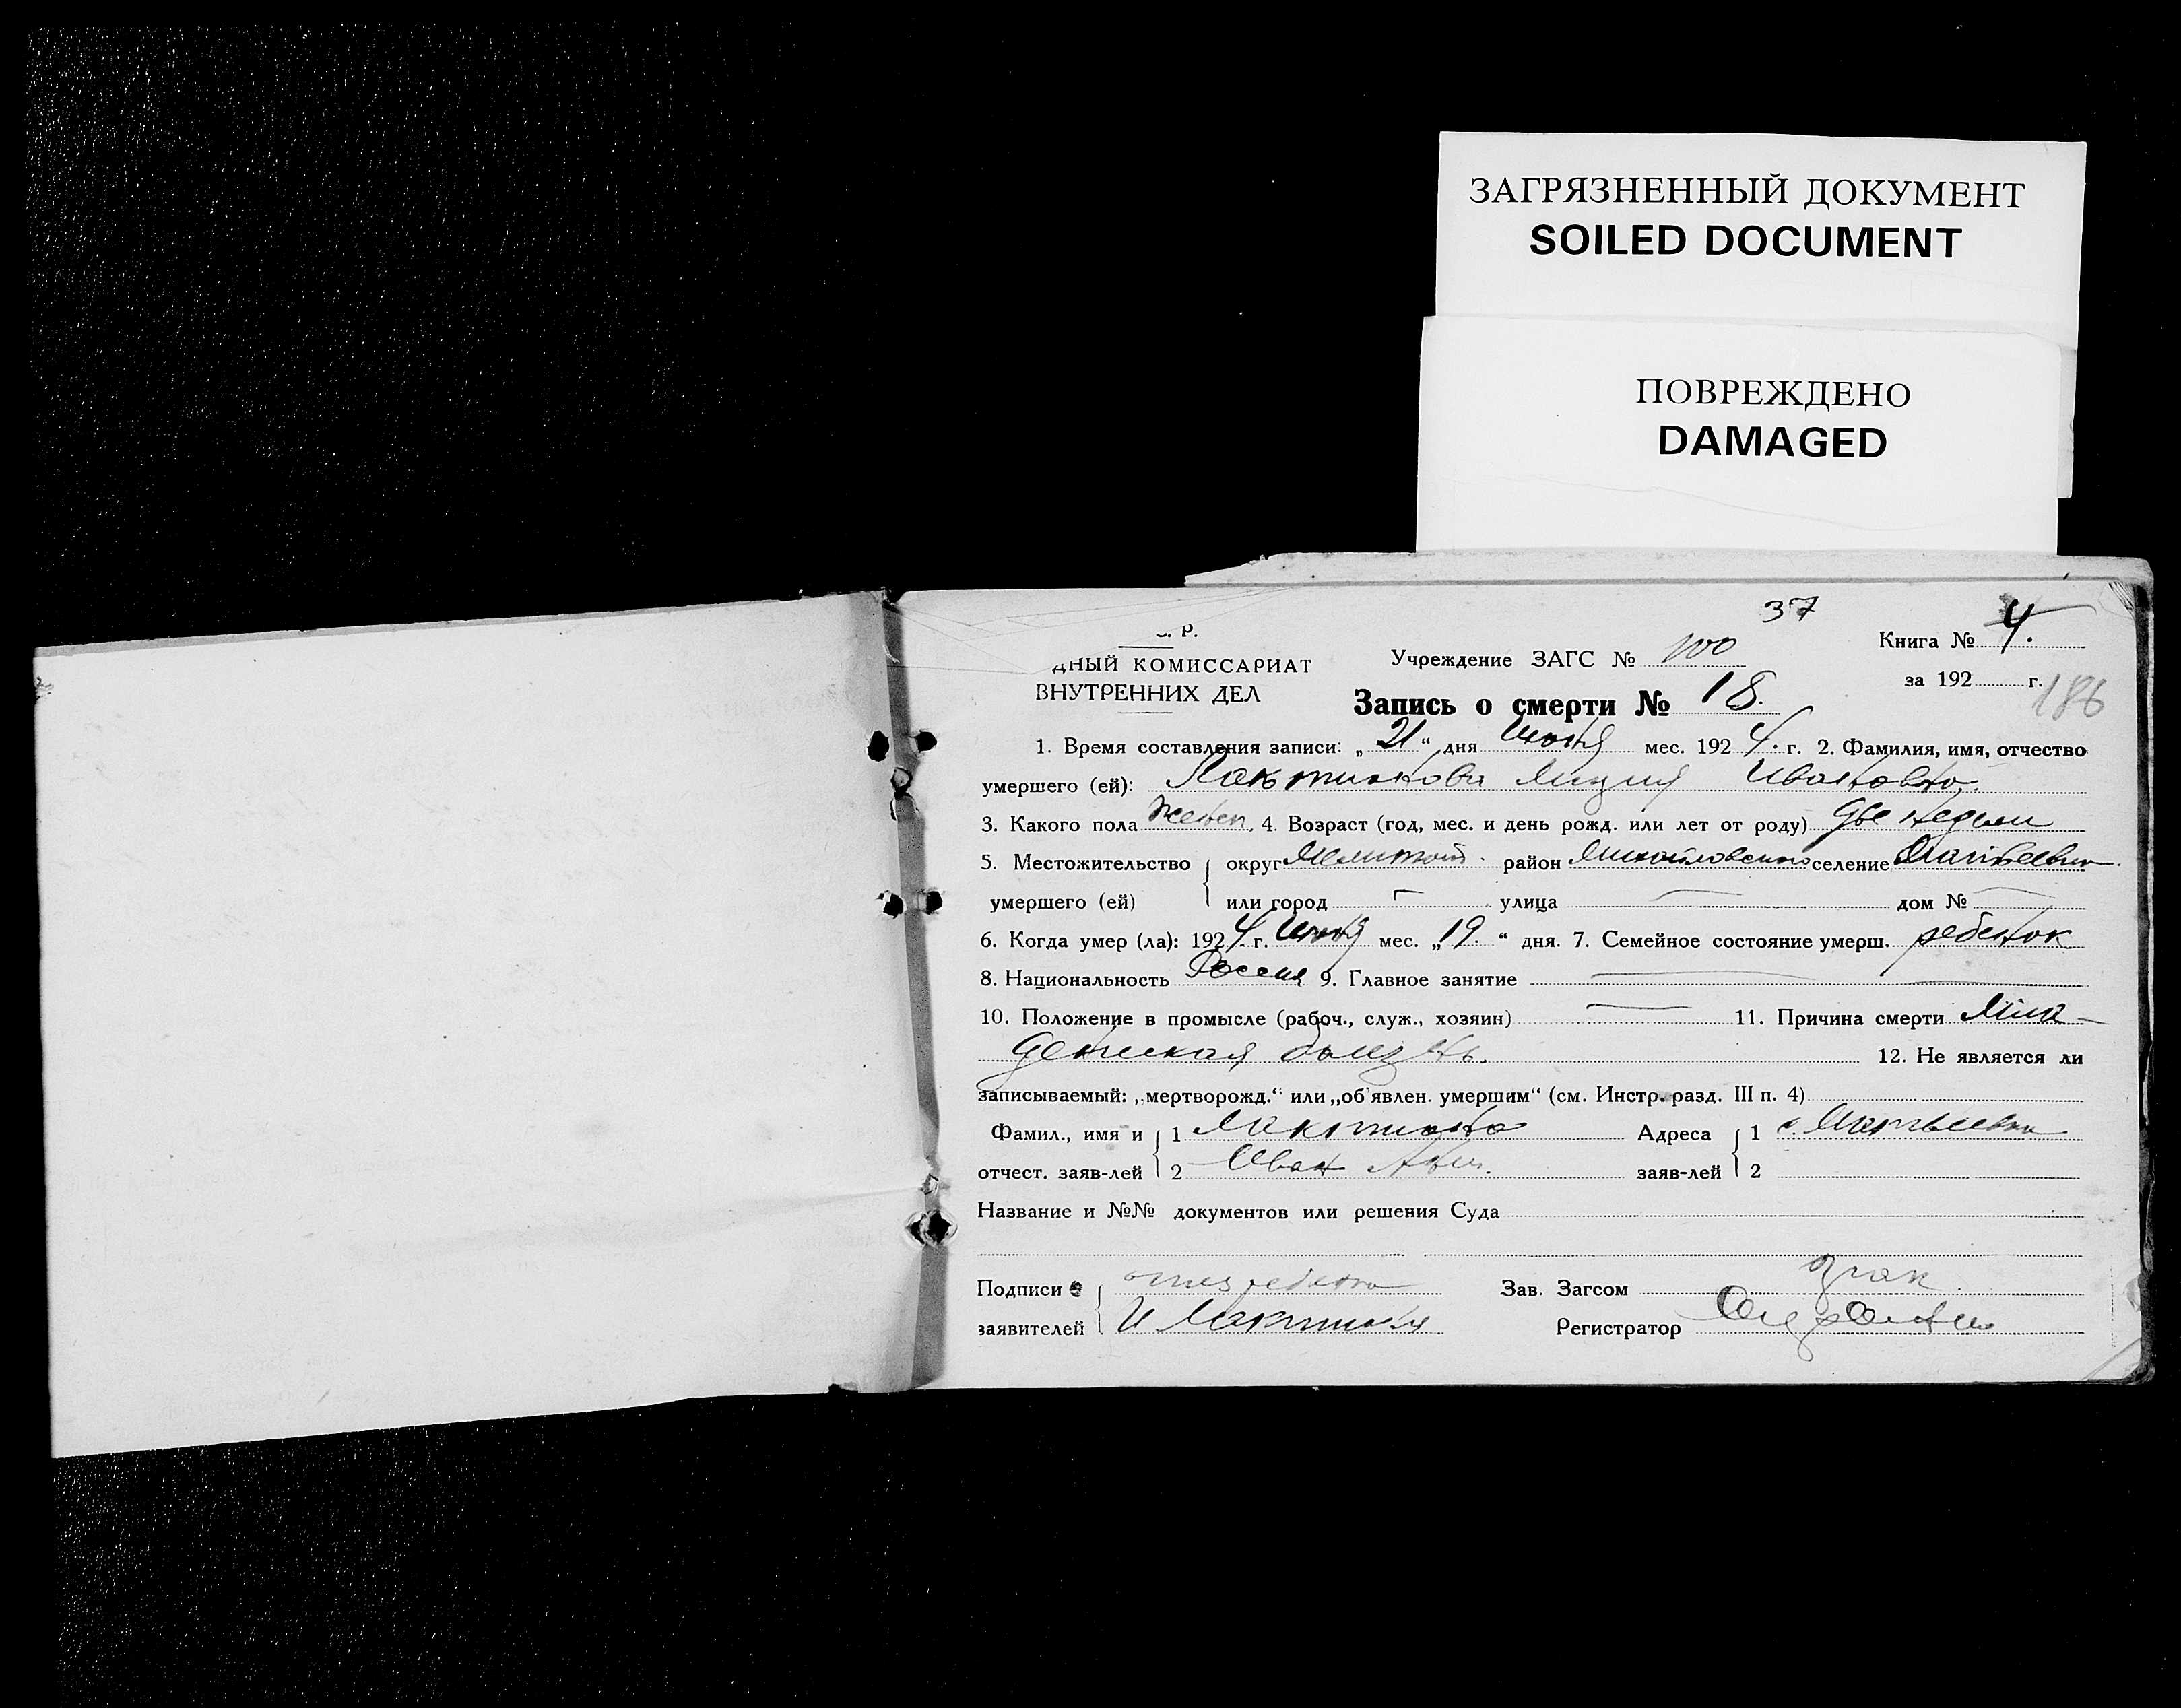 ЗАГРЯЗНЕННЫЙ ДОКУМЕНТ
SOILED DOCUMENT
ПОВРЕЖДЕНО
DAMAGED
37
С. Р.
ДНЫЙ КОМИССАРИАТ
ВНУТРЕННИХ ДЕЛ
Учреждение ЗАГС № 100
Книга № 4.
за 192 г.
186
Запись о смерти № 18.
1. Время составления записи: „21“ дня мес. 1924. г. 2. Фамилия, имя, отчество
умершего (ей): Ивановна
3. Какого пола женск. 4. Возраст (год, мес. и день рожд. или лет от роду) две недели
5. Местожительство округ Мелитоп. район Михайловский селение
умершего (ей) или город улица дом №
6. Когда умер (ла): 1924 г. мес. „19.“ дня. 7. Семейное состояние умерш. ребенок
8. Национальность Россия 9. Главное занятие
10. Положение в промысле (рабоч., служ., хозяин) 11. Причина смерти Мла-
денческая болезнь. 12. Не является ли
записываемый: „мертворожд.“ или „об'явлен. умершим“ (см. Инстр. разд. III п. 4)
Фамил., имя и 1 Адреса 1 с.
отчест. заяв-лей 2 Иван заяв-лей 2
Название и №№ документов или решения Суда
Подписи отец ребенка Зав. Загсом
заявителей И Регистратор